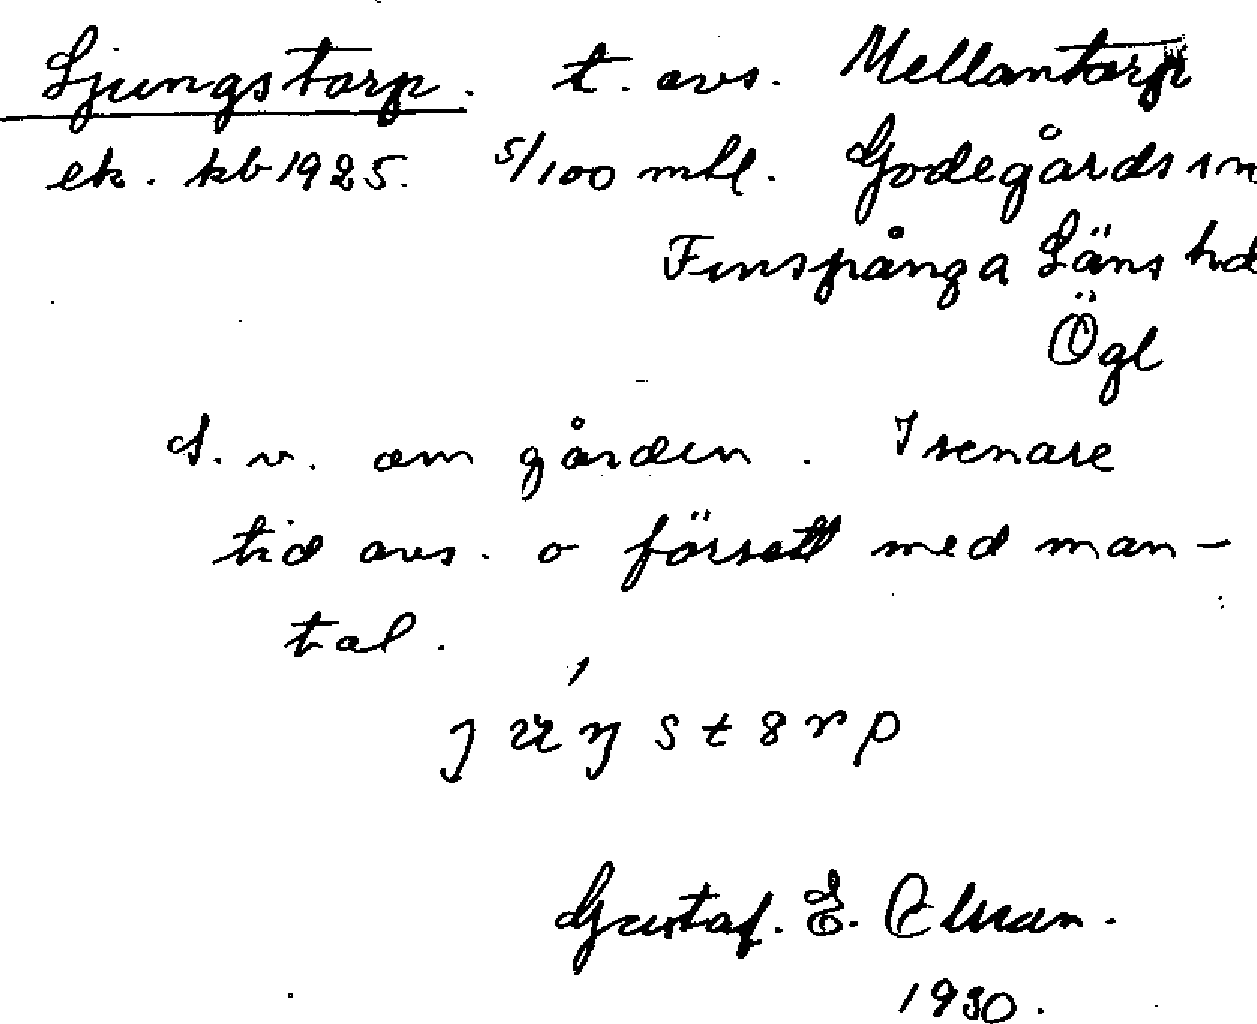 Ljungstorp. t. avs. Mellantorp
ek. kb 1925. 5/100 mtl. Godegårds sn
Finspånga Läns hd
Ögl
S. v. om gården. I senare
tid avs. o försett med man-
tal.
Gustaf. E.
1930.